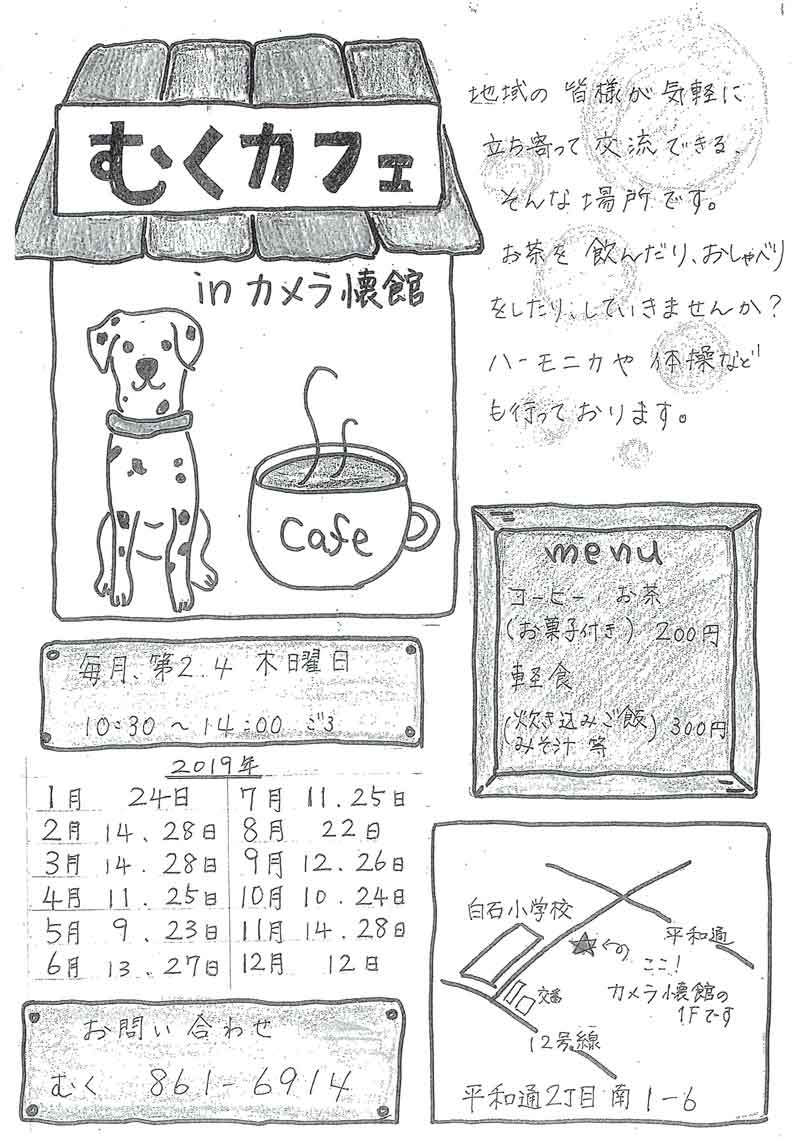 むくカフェ
in カメラ懐館
cafe
地域の皆様が気軽に
立ち寄って交流できる、
そんな場所です。
お茶を飲んだり、おしゃべり
をしたり、していきませんか？
ハーモニカや体操など
も行っております。
menu
コーヒー、お茶
(お菓子付き) 200円
軽食
(炊き込みご飯
みそ汁 等) 300円
毎月、第2.4 木曜日
10:30 〜 14:00 ごろ
2019年
1月 24日
2月 14.28日
3月 14.28日
4月 11.25日
5月 9.23日
6月 13.27日
7月 11.25日
8月 22日
9月 12.26日
10月 10.24日
11月 14.28日
12月 12日
お問い合わせ
むく 861-6914
白石小学校
平和通
ここ!
カメラ懐館の
1Fです
交番
12号線
平和通2丁目南1-6